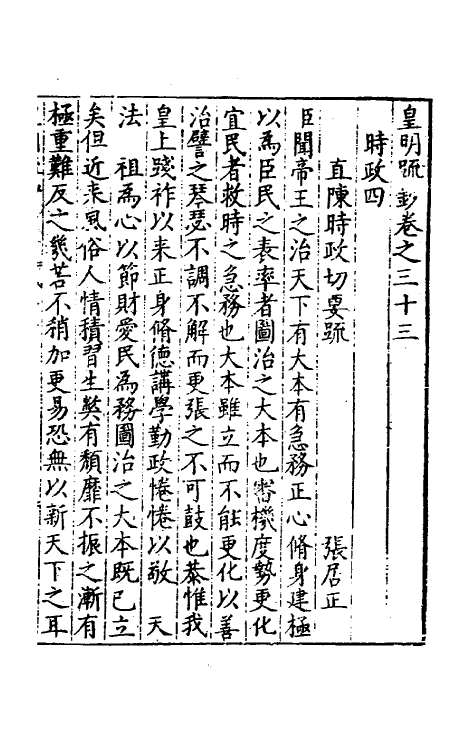 皇明疏鈔卷之三十三
時政四
直陳時政切要疏 張居正
臣聞帝王之治天下有大本有急務正心脩身建極
以為臣民之表率者圖治之大本也審機度勢更化
宜民者救時之急務也大本雖立而不能更化以善
治譬之琴瑟不調不解而更張之不可鼓也恭惟我
皇上踐祚以来正身脩德講學勤政惓惓以敬 天
法 祖為心以節財愛民為務圖治之大本既已立
矣但近来風俗人情積習生弊有頹靡不振之漸有
極重難反之幾若不稍加更易恐無以新天下之耳